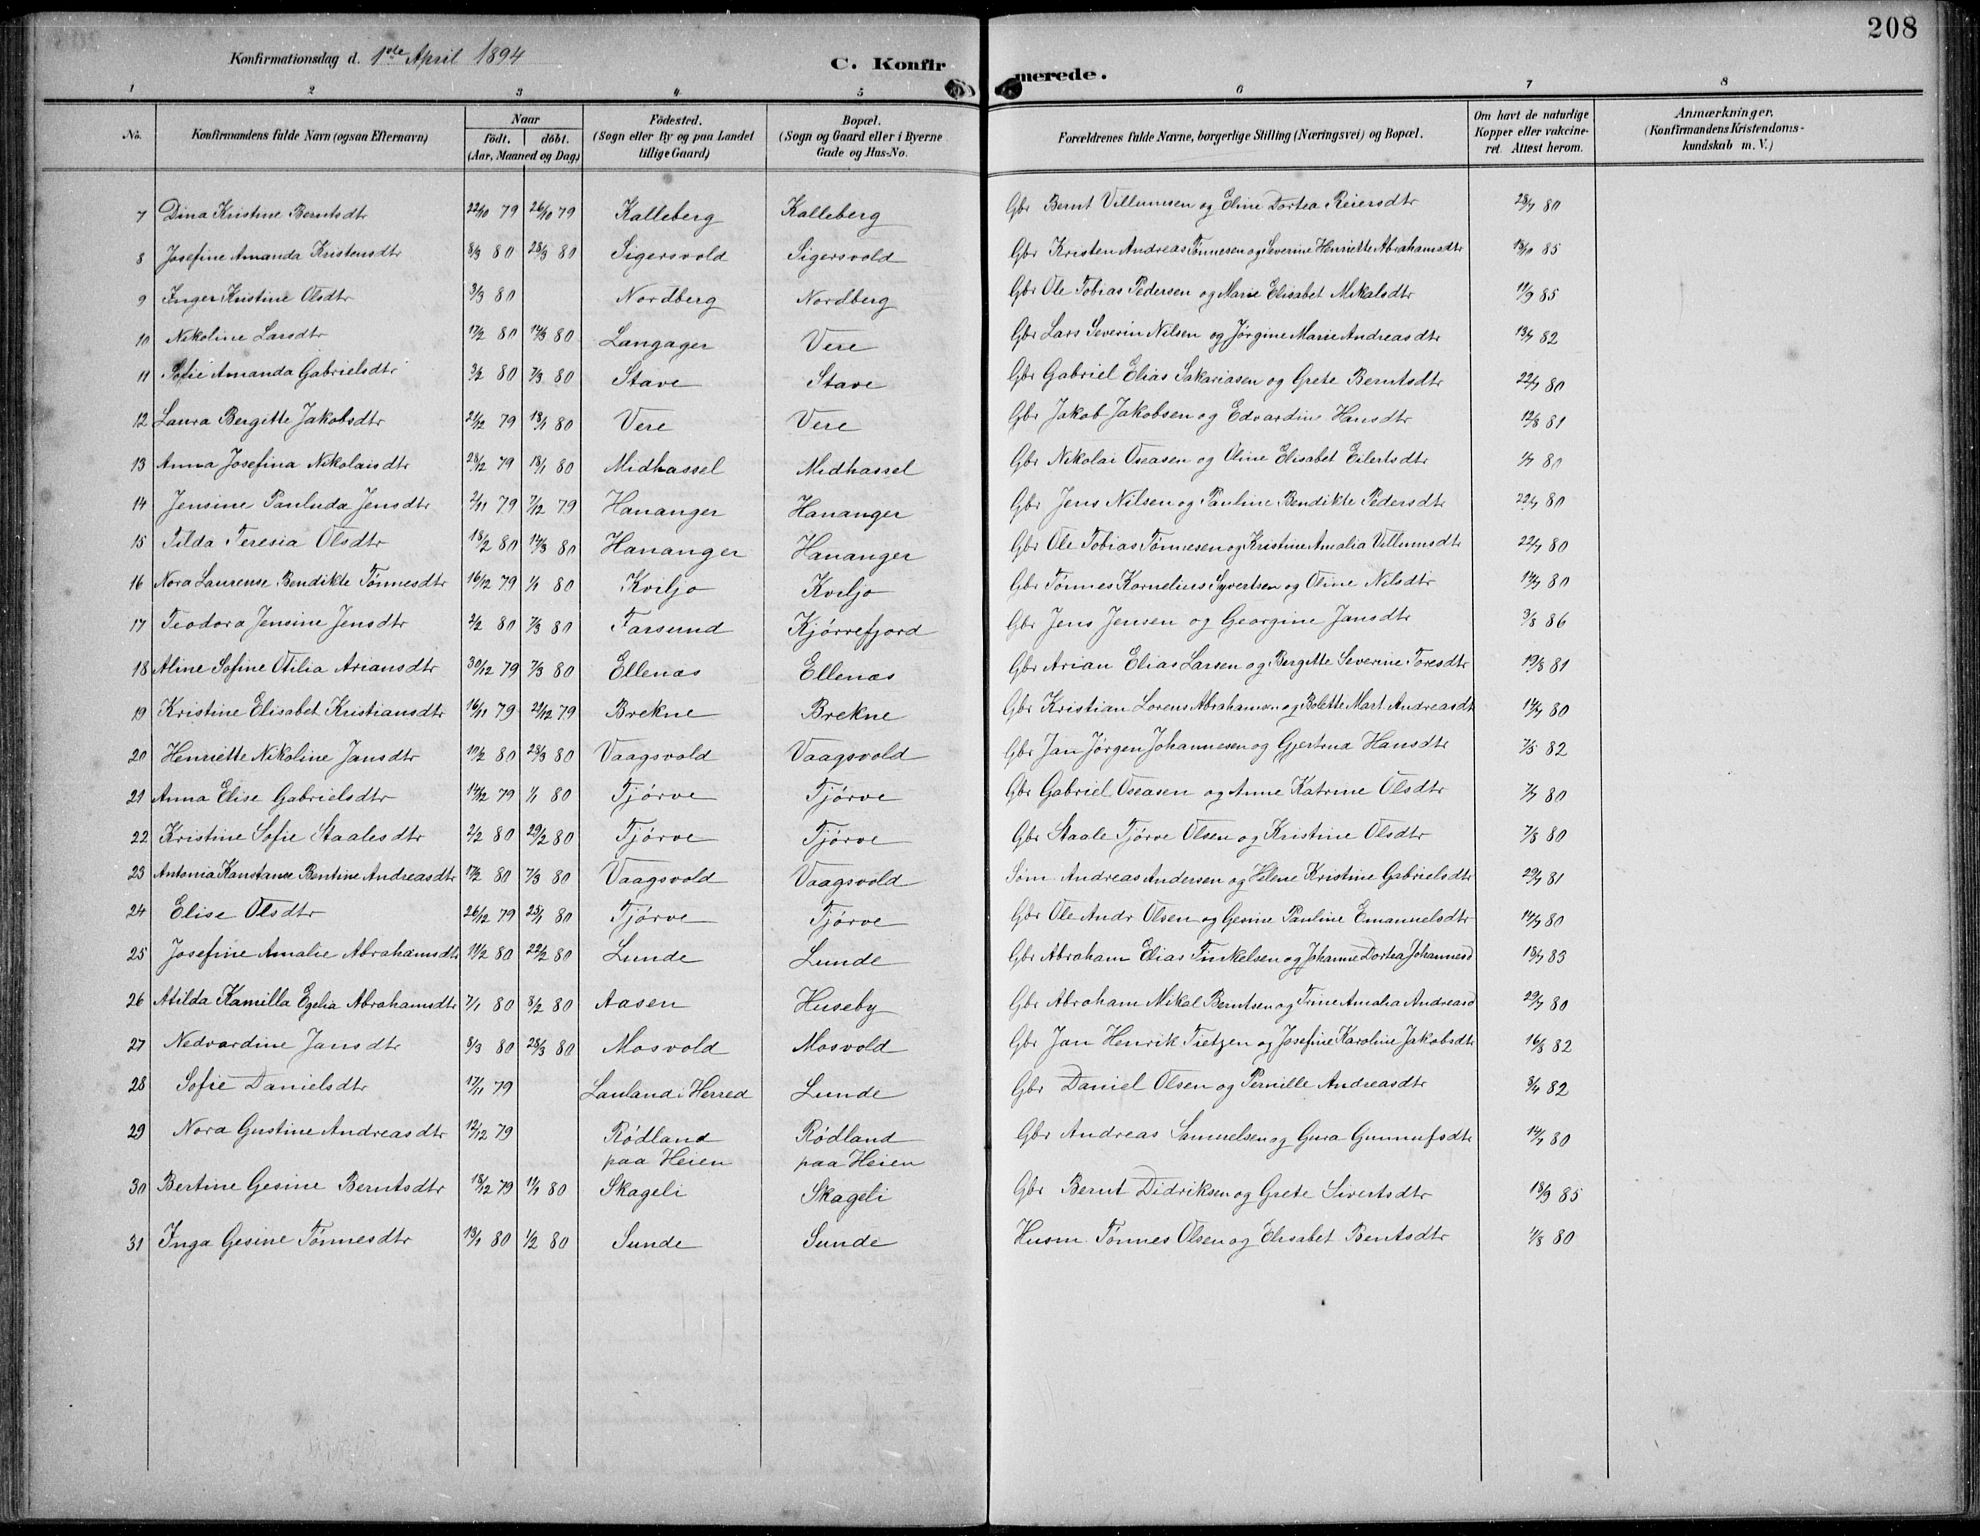 208
Konfirmationsdag d. 1ste April 1894
C. Konfirmerede.
1 2 3 4 5 6 7 8
No. Konfirmandens fulde Navn (ogsaa Efternavn) Naar født. døbt. (Aar, Maaned og Dag) Fødested. (Sogn eller By og paa Landet tillige Gaard) Bopæl. (Sogn og Gaard eller i Byerne Gade og Hus-No. Forældrenes fulde Navne, borgerlige Stilling (Næringsvei) og Bopæl. Om havt de naturlige Kopper eller vakcineret. Attest herom. Anmærkninger. (Konfirmandens Kristendomskundskab m. V.)
7 Dina Kristine Berntsdtr 22/10 79 26/10 79 Kalleberg Kalleberg Gbr Bernt Villumsen og Eline Dortea Reiersdtr 28/7 80
8 Josefine Amanda Kristensdtr 8/3 80 28/3 80 Sigersvold Sigersvold Gbr Kristen Andreas Tønnesen og Severine Henriette Abrahamsdtr 18/10 85
9 Inger Kristine Olsdtr 3/3 80 Nordberg Nordberg Gbr Ole Tobias Pedersen og Marie Elisabet Mikalsdtr 11/9 85
10 Nikoline Larsdtr 17/2 80 14/3 80 Langager Vere Gbr Lars Severin Nilsen og Jørgine Marie Andreasdtr 13/7 82
11 Sofie Amanda Gabrielsdtr 3/2 80 7/3 80 Stave Stave Gbr Gabriel Elias Sakariasen og Grete Berntsdtr 22/7 80
12 Laura Bergitte Jakobsdtr 21/12 79 18/1 80 Vere Vere Gbr Jakob Jakobsen og Edvardine Hansdtr 12/8 81
13 Anna Josefina Nikolaisdtr 28/12 79 18/1 80 Midhassel Midhassel Gbr Nikolai Oseasen og Oline Elisabet Eilertsdtr 1/7 80
14 Jensine Pauluda Jensdtr 2/11 79 7/12 79 Hananger Hananger Gbr Jens Nilsen og Pauline Bendikte Pedersdtr 22/7 80
15 Tilda Teresia Olsdtr 18/2 80 14/3 80 Hananger Hananger Gbr Ole Tobias Tønnesen og Kristine Amalia Villumsdtr 22/7 80
16 Nora Laurense Bendikte Tønnesdtr 16/12 79 1/1 80 Kviljo Kviljo Gbr Tønnes Kornelius Syvertsen og Oline Nilsdtr 14/7 80
17 Teodora Jensine Jensdtr 2/2 80 7/3 80 Farsund Kjørrefjord Gbr Jens Jensen og Georgine Jansdtr 3/8 86
18 Aline Sofine Otilia Ariansdtr 30/12 79 7/3 80 Ellenæs Ellenæs Gbr Arian Elias Larsen og Bergitte Severine Toresdtr 19/8 81
19 Kristine Elisabet Kristiansdtr 16/11 79 21/12 79 Brekne Brekne Gbr Kristian Lorens Abrahamsen og Bolette Mart. Andreasdt 14/7 80
20 Henriette Nikoline Jansdtr 10/2 80 28/3 80 Vaagsvold Vaagsvold Gbr Jan Jørgen Johannesen og Gjertrud Hansdtr 7/8 82
21 Anna Elise Gabrielsdtr 14/12 79 1/1 80 Tjørve Tjørve Gbr Gabriel Oseasen og Anne Katrine Olsdtr 7/7 80
22 Kristine Sofie Staalesdtr 2/2 80 29/2 80 Tjørve Tjørve Gbr Staale Tjørve Olsen og Kristine Olsdtr 7/8 80
23 Antonia Konstanse Bentine Andreasdtr 17/2 80 7/3 80 Vaagsvold Vaagsvold Søm. Andreas Andersen og Helene Kristine Gabrielsdtr 29/7 81
24 Elise Olsdtr 26/12 79 25/1 80 Tjørve Tjørve Gbr Ole Andr Olsen og Gesine Pauline Emanuelsdtr 14/7 80
25 Josefine Amalie Abrahamsdtr 11/2 80 22/2 80 Lunde Lunde Gbr Abraham Elias Tinkelsen og Johanne Dortea Johannesd 18/7 83
26 Atilda Kamilla Egelia Abrahamsdtr 7/1 80 8/2 80 Aasen Huseby Gbr Abraham Mikal Berntsen og Trine Amalia Andreasd 29/7 80
27 Nedvardine Jansdtr 8/3 80 28/3 80 Mosvold Mosvold Gbr Jan Henrik Tietzen og Josefine Karoline Jakobsdtr 16/8 82
28 Sofie Danielsdtr 17/11 79 Lauland i Herred Lunde Gbr Daniel Olsen og Pernille Andreasdtr 8/4 82
29 Nora Gustine Andreasdtr 12/12 79 Rødland paa Heien Rødland paa Heien Gbr Andreas Samuelsen og Gura Gunnufsdtr 14/7 80
30 Bertine Gesine Berntsdtr 18/12 79 11/1 80 Skageli Skageli Gbr Bernt Didriksen og Grete Sivertsdtr 18/9 85
31 Inga Gesine Tønnesdtr 13/1 80 1/2 80 Sunde Sunde Husm. Tønnes Olsen og Elisabet Bentsdtr 4/8 80